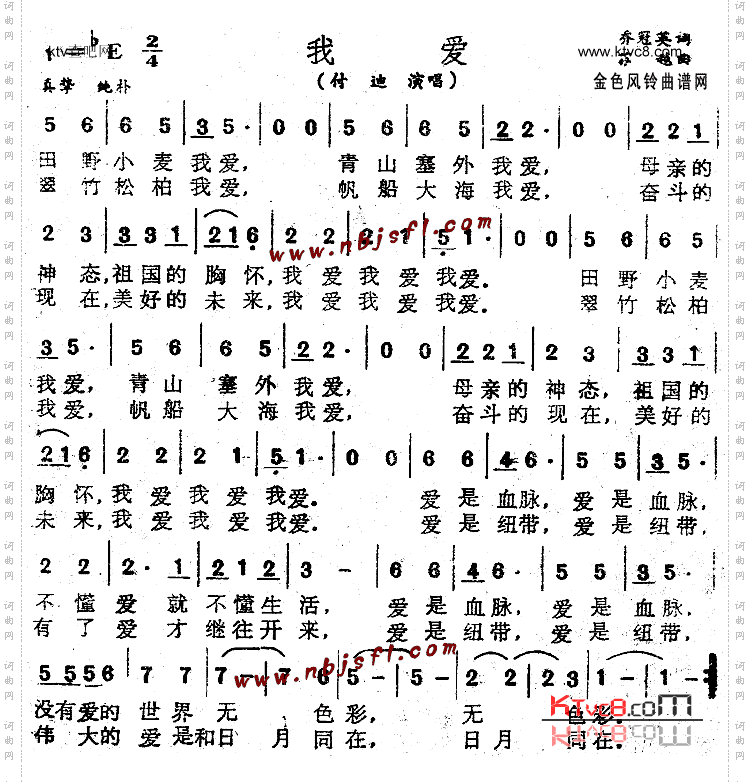 1=♭E 2/4
我 爱
乔冠英 词
www.ktvc8.com
曲
真挚 纯朴
(付 迪 演唱)
金色风铃曲谱网
5 6 | 6 5 | 3 5· | 0 0 | 5 6 | 6 5 | 2 2· | 0 0 | 2 2 1 |
田野小麦我爱, 青山塞外我爱, 母亲的
翠竹松柏我爱, 帆船大海我爱, 奋斗的
www.nbjsfl.com
2 3 | 3 3 1 | 2 1 6 | 2 2 | 2 1 | 5 1· | 0 0 | 5 6 | 6 5 |
神态,祖国的 胸怀,我 爱我爱我爱. 田野小麦
现在,美好的 未来,我 爱我爱我爱. 翠竹松柏
3 5· | 5 6 | 6 5 | 2 2· | 0 0 | 2 2 1 | 2 3 | 3 3 1 |
我爱, 青山 塞外我爱, 母亲的 神态, 祖国的
我爱, 帆船 大海我爱, 奋斗的 现在, 美好的
2 1 6 | 2 2 | 2 1 | 5 1· | 0 0 | 6 6 | 4 6· | 5 5 | 3 5· |
胸怀,我 爱我爱 我爱. 爱是血脉, 爱是血脉,
未来,我 爱我爱 我爱. 爱是纽带, 爱是纽带,
2 2 | 2· 1 | 2 1 2 | 3 - | 6 6 | 4 6· | 5 5 | 3 5· |
不懂 爱 就 不懂生活, 爱是血脉, 爱是血脉,
有了 爱 才 继往开来, 爱是纽带, 爱是纽带,
5 5 5 6 | 7 7 | 7 - | 7 6 | 5 - | 5 - | 2 2 | 2 3 | 1 - | 1 - ‖
www.nbjsfl.com
没有爱的 世界 无 色彩, 无 色彩.
伟 大的 爱是和日 月 同在, 日月 同在.
KTvc8.com
词曲网